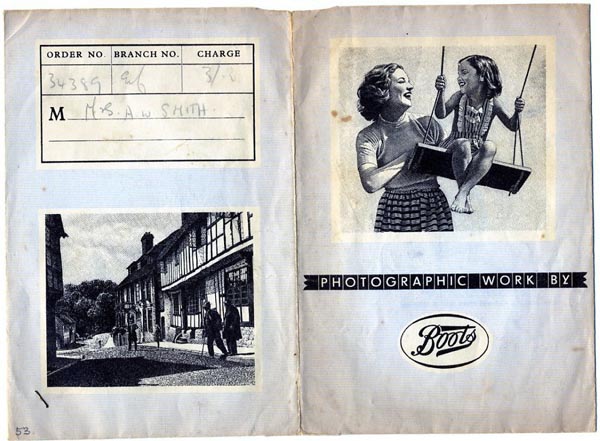 ORDER NO. BRANCH NO. CHARGE
34389
M Mrs. A W SMITH.
53.
PHOTOGRAPHIC WORK BY
Boots